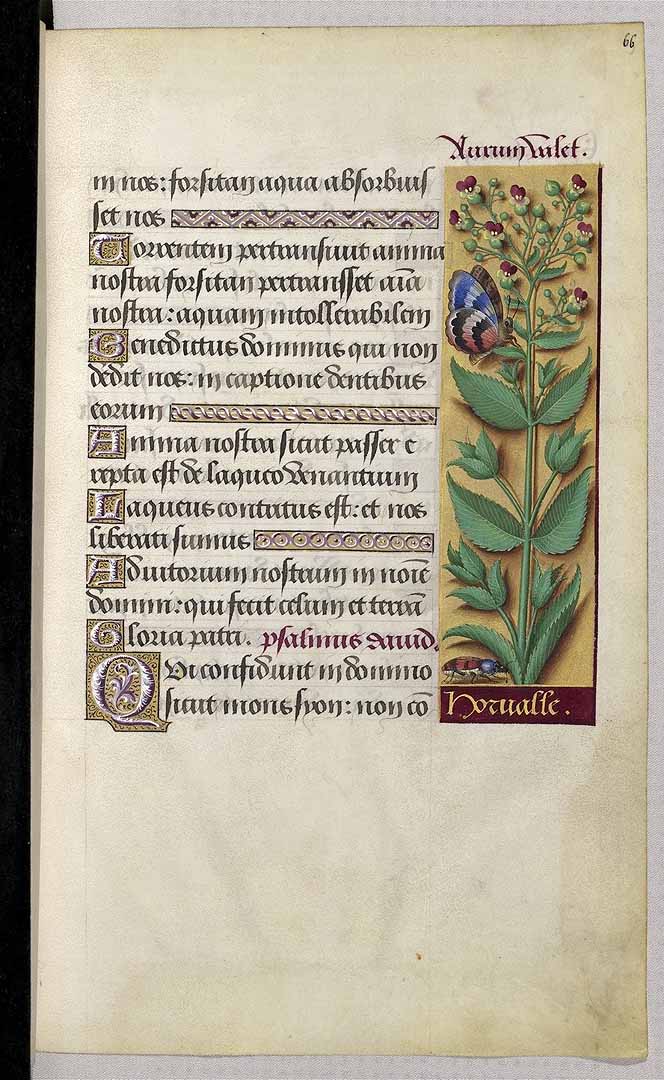 66
Aurum valet.
in nos: forsitan aqua absorbuis
set nos
Torrentem pertransiuit anima
nostra forsitan pertransset aīa
nostra: aquam intollerabilem
Benedictus dominus qui non
dedit nos: in captione dentibus
eorum
Anima nostra sicut passer e
repta est de laqueo venantium
Laqueus contritus est: et nos
liberati sumus
Adiutorium nostrum in noīe
domini: qui fecit celum et terrā
Gloria patri. psalmus dauid.
Qvi confidunt in domino
sicut mons syon: non cō
Horualle.